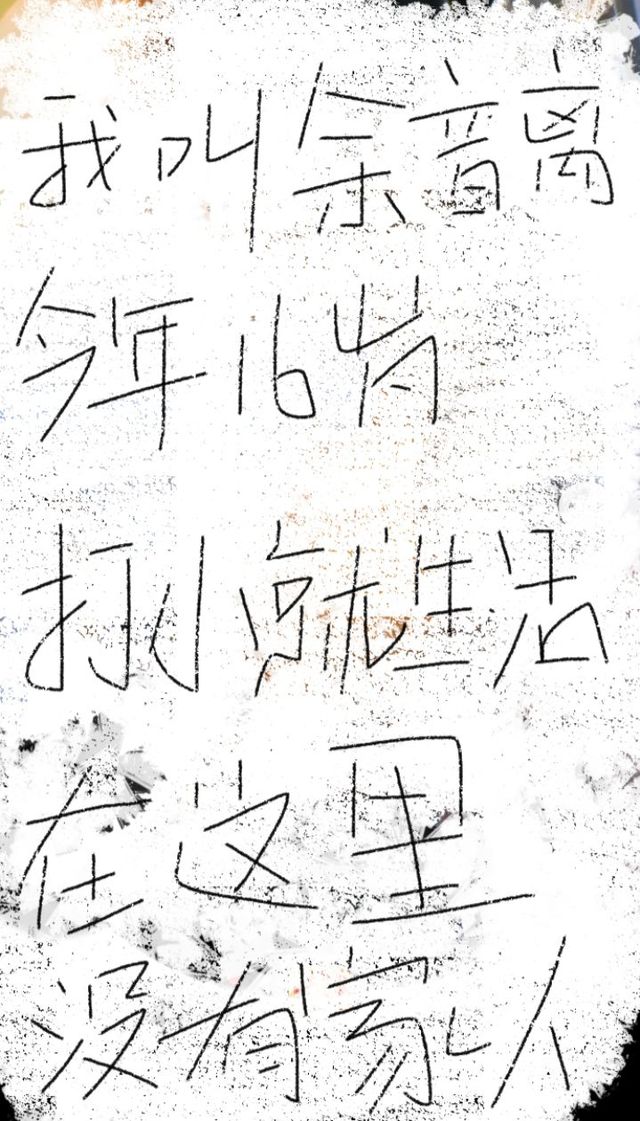 我叫余音离
今年16岁
打小就生活
在这里
没有家人